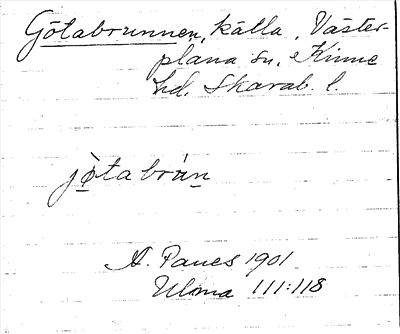 Götabrunnen, källa, Väster-
plana sn, Kinne
hd. Skarab. l.
jötabrun
A. Panes 1901
Ulma 111:118